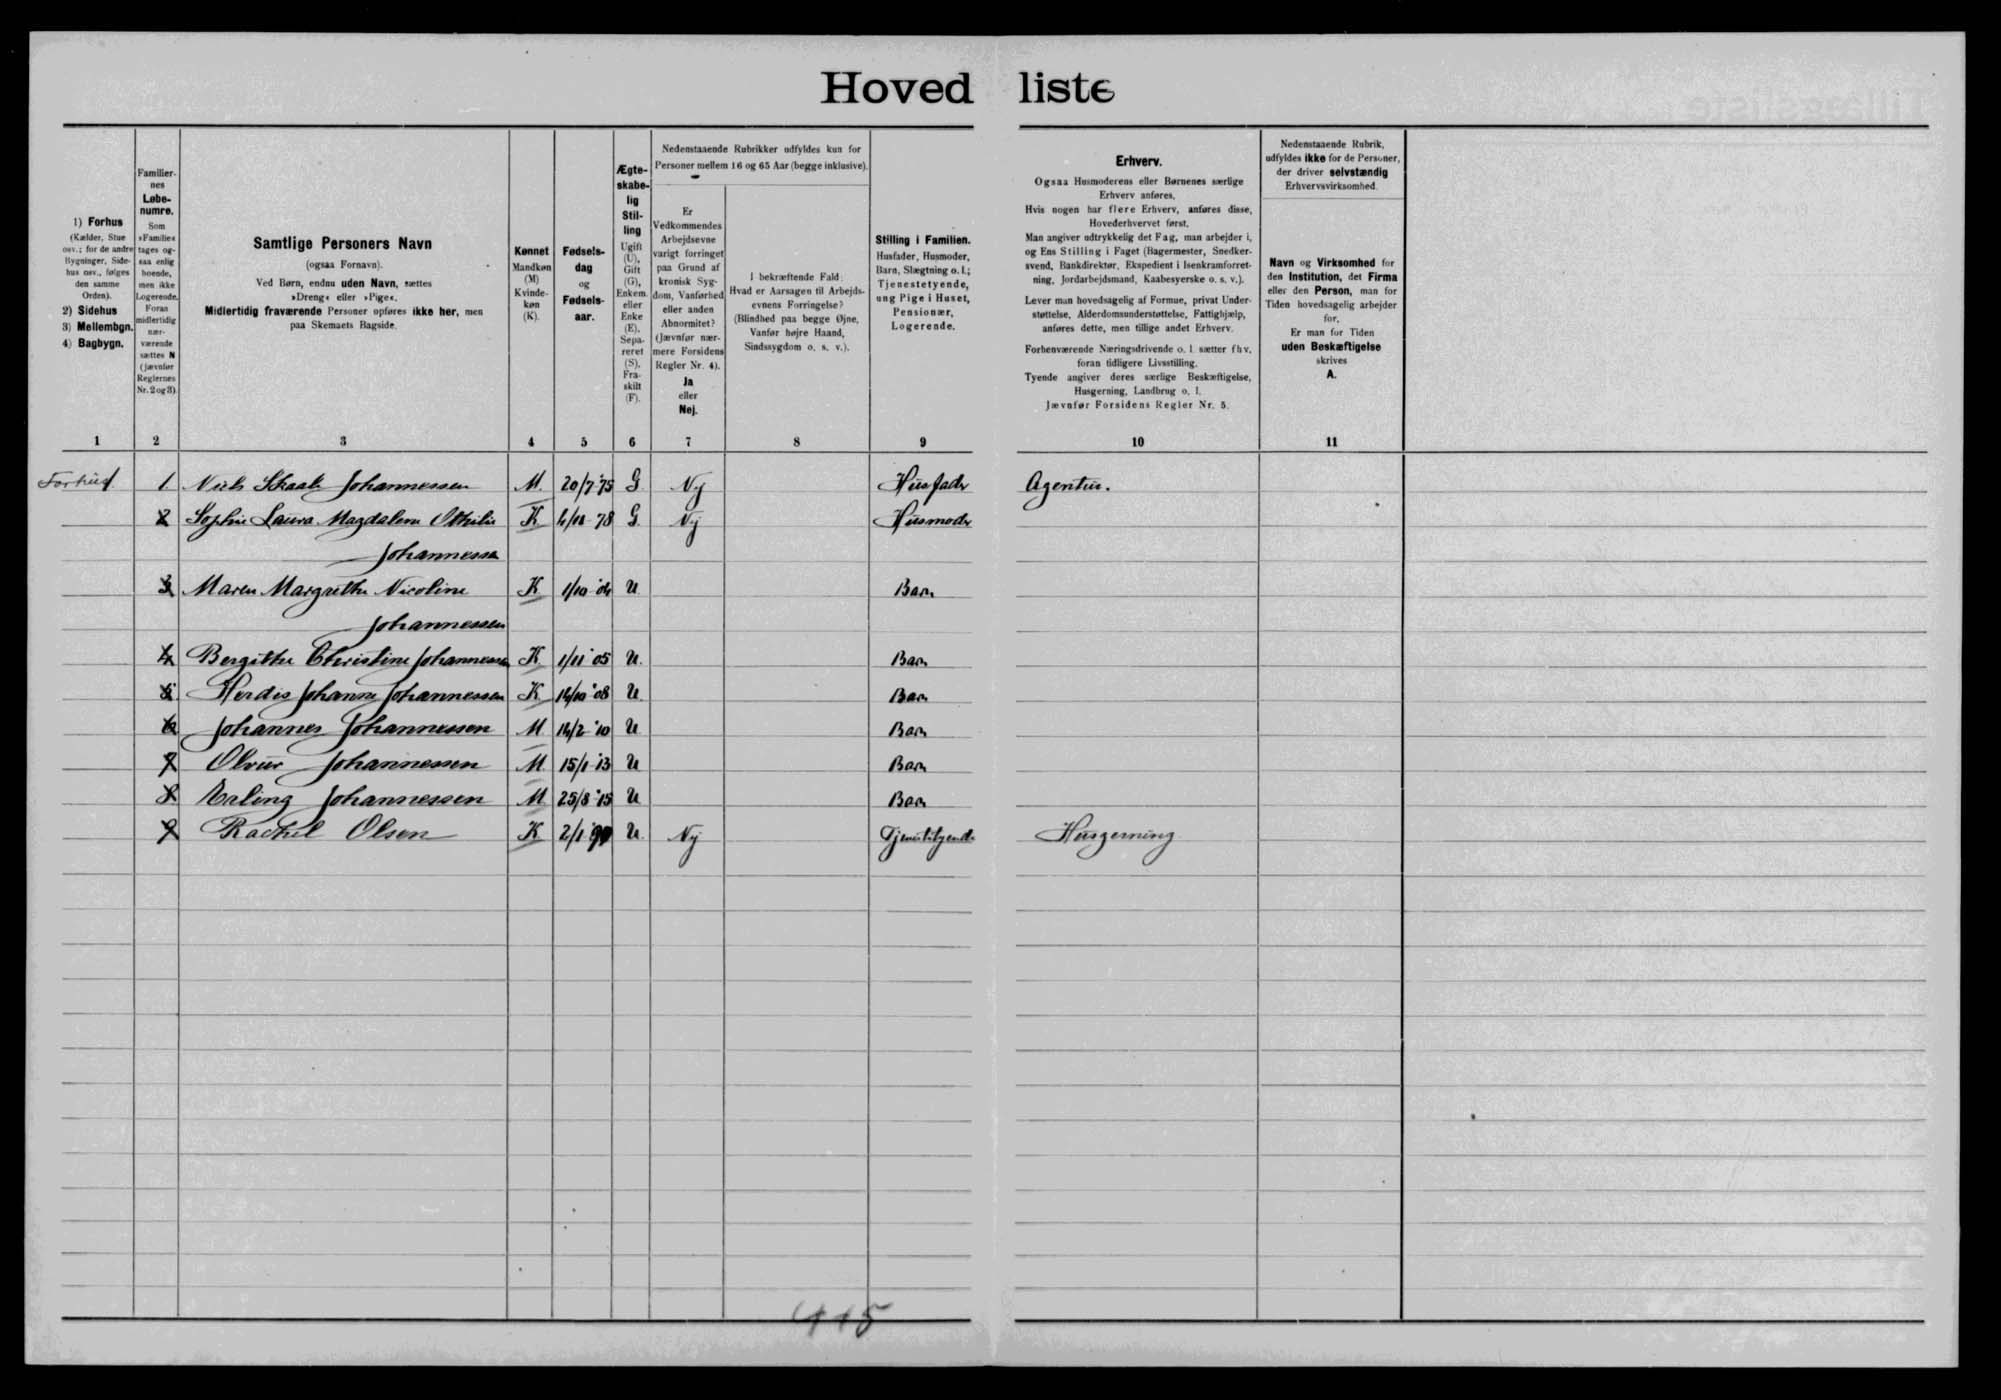 Hovedliste
1) Forhus
(Kælder, Stue
osv.; for de andre
Bygninger, Side-
hus osv., følges
den samme
Orden).
2) Sidehus
3) Mellembgn.
4) Bagbygn.
Familier-
nes
Løbe-
numre.
Som
»Familie«
tages og-
saa enlig
boende,
men ikke
Logerende.
Foran
midlertidig
nær-
værende
sættes N
(jævnfør
Reglernes
Nr. 2 og 3)
Samtlige Personers Navn
(ogsaa Fornavn).
Ved Børn, endnu uden Navn, sættes
»Dreng« eller »Pige«.
Midlertidig fraværende Personer opføres ikke her, men
paa Skemaets Bagside.
Kønnet
Mandkøn
(M)
Kvinde-
køn
(K).
Fødsels-
dag
og
Fødsels-
aar.
Ægte-
skabe-
lig
Stil-
ling
Ugift
(U),
Gift
(G),
Enkem.
eller
Enke
(E),
Sepa-
reret
(S),
Fra-
skilt
(F).
Nedenstaaende Rubrikker udfyldes kun for
Personer mellem 16 og 65 Aar (begge inklusive).
Er
Vedkommendes
Arbejdsevne
varigt forringet
paa Grund af
kronisk Syg-
dom, Vanførhed
eller anden
Abnormitet?
(Jævnfør nær-
mere Forsidens
Regler Nr. 4).
Ja
eller
Nej.
I bekræftende Fald:
Hvad er Aarsagen til Arbejds-
evnens Forringelse?
(Blindhed paa begge Øjne,
Vanfør højre Haand,
Sindssygdom o. s. v.).
Stilling i Familien.
Husfader, Husmoder,
Barn, Slægtning o. l.;
Tjenestetyende,
ung Pige i Huset,
Pensionær,
Logerende.
Erhverv.
Ogsaa Husmoderens eller Børnenes særlige
Erhverv anføres,
Hvis nogen har flere Erhverv, anføres disse,
Hovederhvervet først.
Man angiver udtrykkelig det Fag, man arbejder i,
og Ens Stilling i Faget (Bagermester, Snedker-
svend, Bankdirektør, Ekspedient i Isenkramforret-
ning, Jordarbejdsmand, Kaabesyerske o. s. v.).
Lever man hovedsagelig af Formue, privat Under-
støttelse, Alderdomsunderstøttelse, Fattighjælp,
anføres dette, men tillige andet Erhverv.
Forhenværende Næringsdrivende o. l. sætter fhv.
foran tidligere Livsstilling.
Tyende angiver deres særlige Beskæftigelse,
Husgerning, Landbrug o. l.
Jævnfør Forsidens Regler Nr. 5.
Nedenstaaende Rubrik,
udfyldes ikke for de Personer,
der driver selvstændig
Erhvervsvirksomhed.
Navn og Virksomhed for
den Institution, det Firma
eller den Person, man for
Tiden hovedsagelig arbejder
for.
Er man for Tiden
uden Beskæftigelse
skrives
A.
1 2 3 4 5 6 7 8 9 10 11
Forhus. 1. Niels Skaale Johannessen M. 20/7 '75 G. Nej Husfader Agentur.
2 Sophie Laura Magdalene Othilie K 4/10 78 G. Nej Husmoder
Johannessen
3 Maren Margrethe Nicoline K 1/10 '04 U. Barn
Johannessen
4 Bergithe Christine Johannessen K. 1/11 '05 U. Barn
5 Herdis Johanne Johannessen K 14/10 '08 U. Barn
6 Johannes Johannessen M 14/2 '10 U Barn
7 Olvur Johannessen M 15/1 '13 U Barn
8 Erling Johannessen M 25/8 '15 U Barn
9 Rachel Olsen K 2/1 U. Nej Tjenestetyende Husgerning